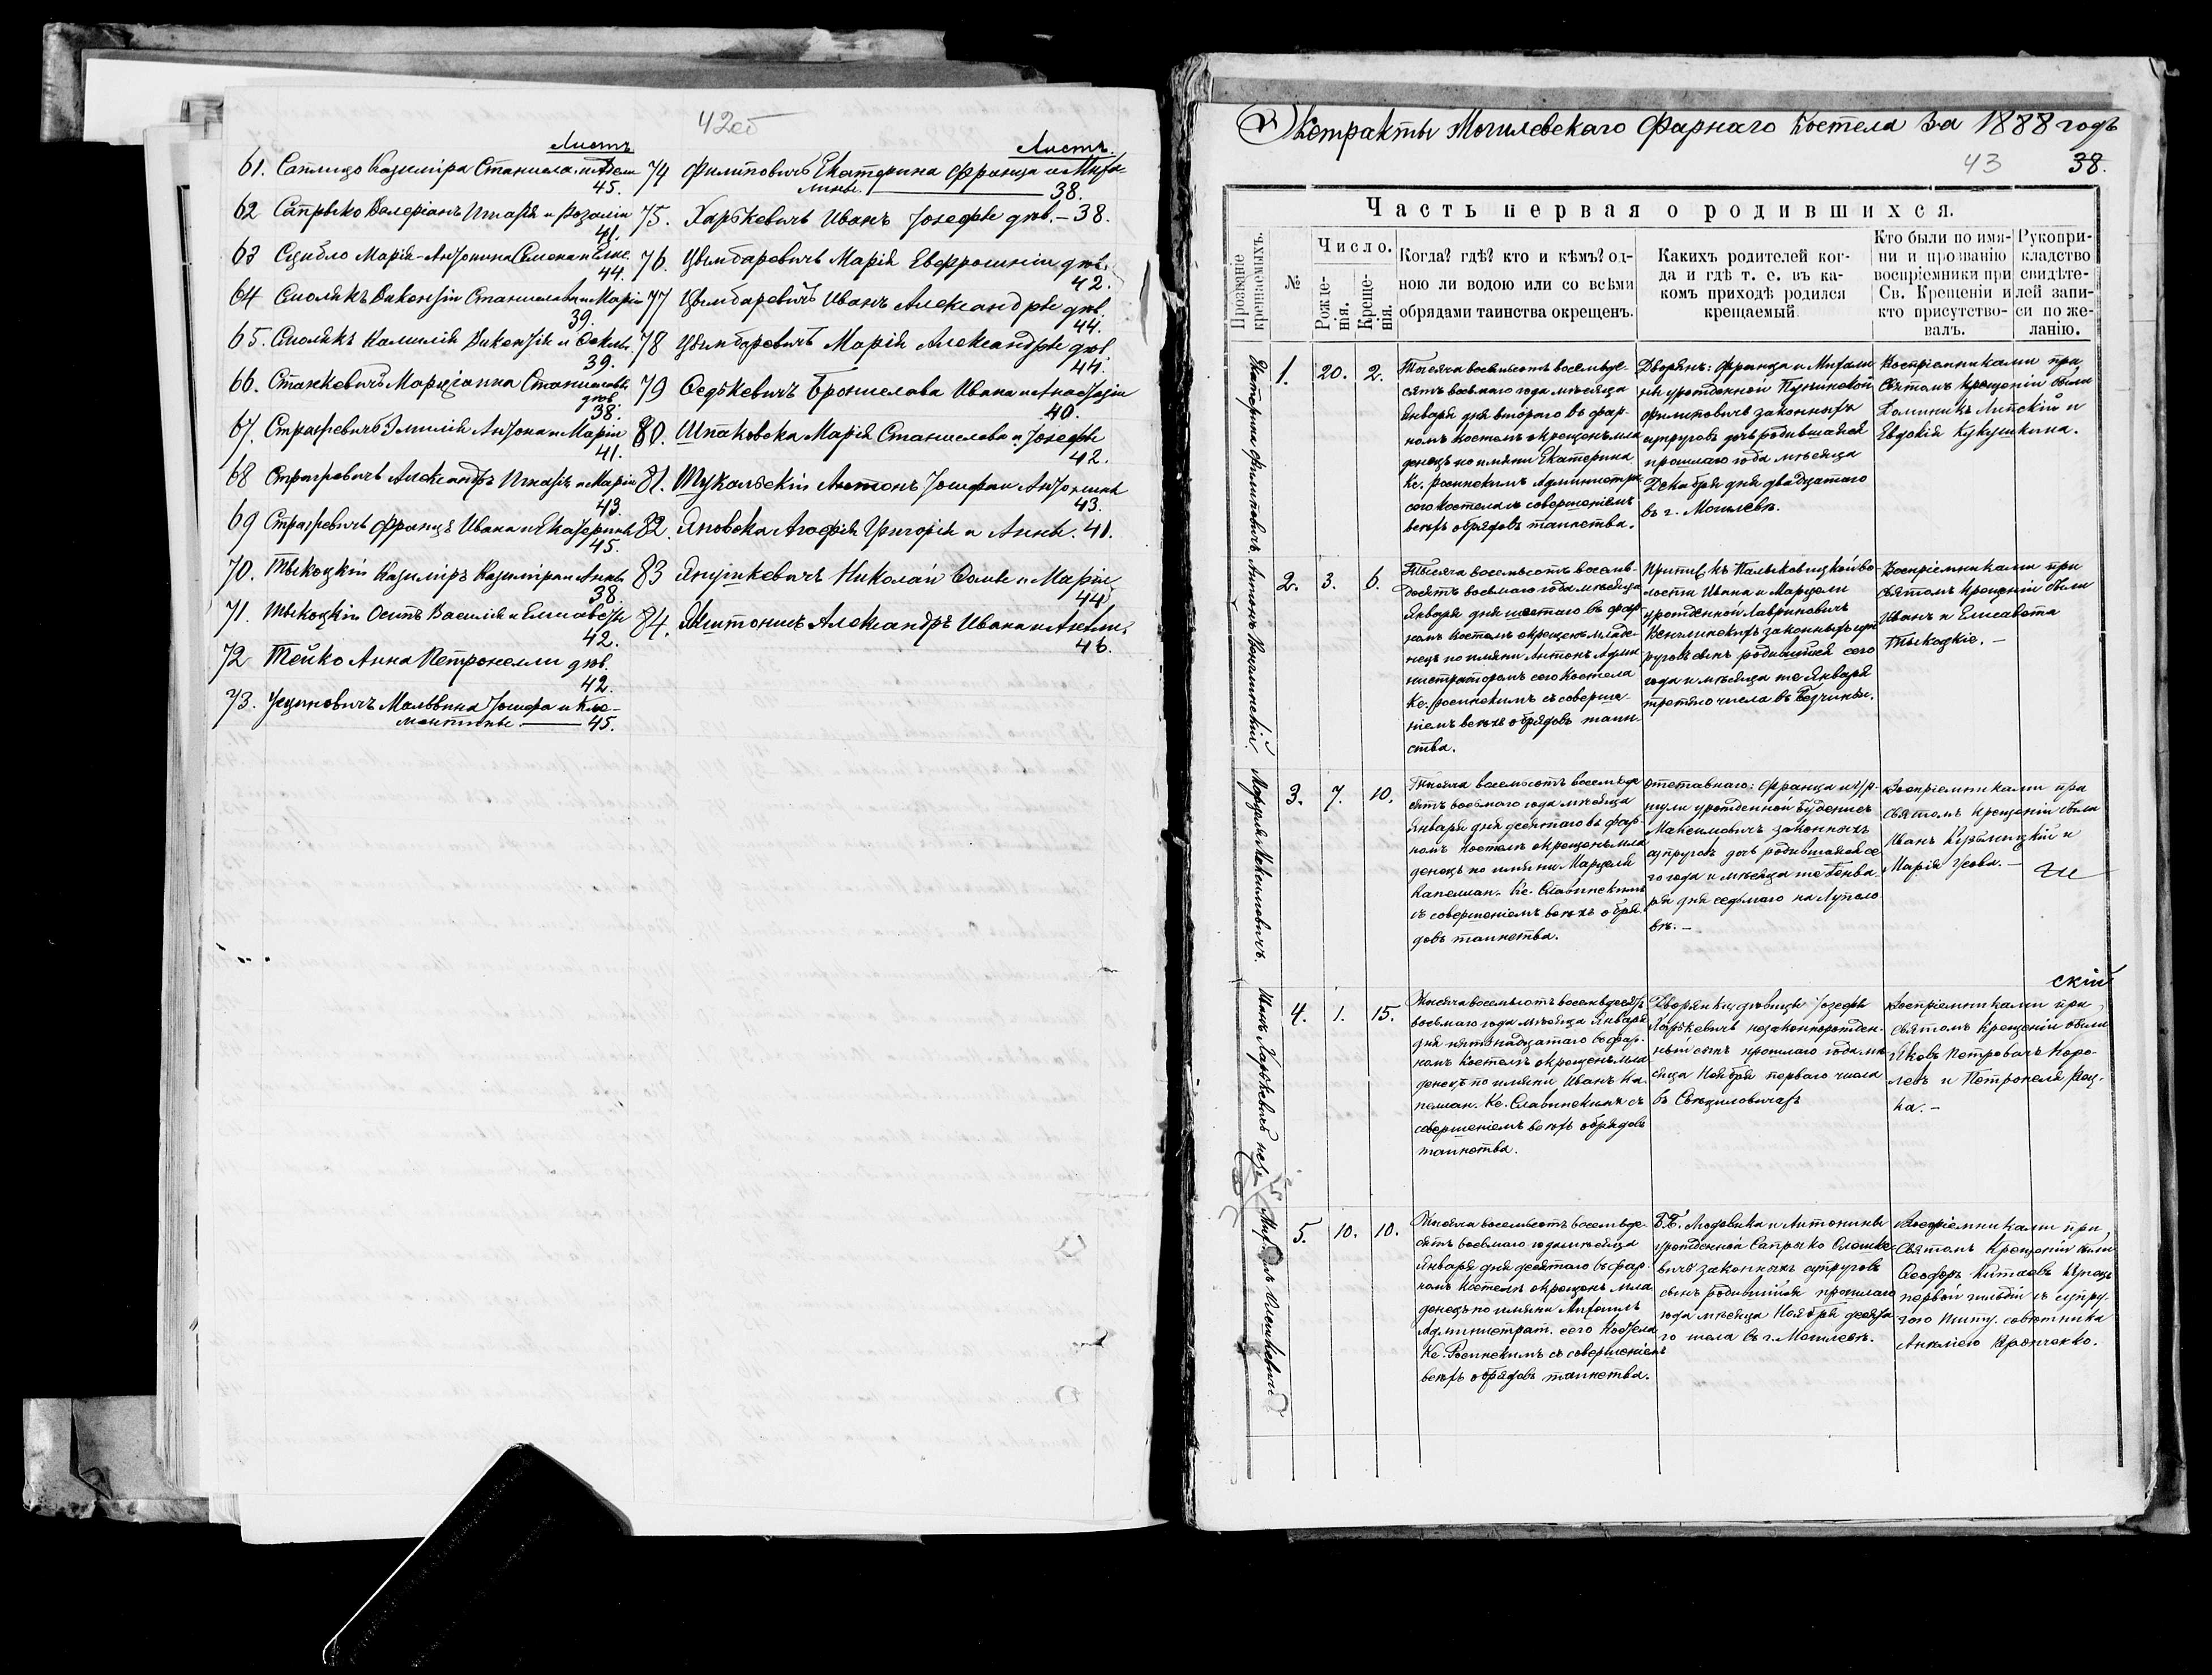 42об
Листъ
61. Саплицо Казимира Станисла. и Адели
45.
62 Сапрыко Валеріанъ Игнатія и Розаліи
41.
63 Сцибло Марія-Антонина Семена и Елис.
44.
64 Смолякъ Викентій Станислава и Маріи
39.
65. Смолякъ Камилія Викентія и
39.
66. Станкевичъ Маріанна Станиславы
дѣв.
38.
67. Стратевичъ Эмилія Антона и Маріи
41.
68 Стратевичъ Александръ Игнатія и Маріи
43.
69 Стратевичъ Францъ Ивана и Екатерины
45.
70. Тыкоцкій Казиміръ Казиміра и Анны
38.
71. Тыкоцкій Осипъ Василія и Елисаветы
42.
72 Тейко Анна Петронелли дѣв.
42.
73. Усциновичъ Мальвина Іосифа и Кле-
ментины 45.
Листъ.
74 Филиповичъ Екатерина Франца и Миха-
лины. 38.
75. Харькевичъ Иванъ Іозефы дѣв. - 38.
76. Цымбаревичъ Марія Евфросиніи дѣв.
42.
77 Цымбаревичъ Иванъ Александры дѣв.
44.
78 Цымбаревичъ Марія Александры дѣв.
44.
79 Федькевичъ Бронислава Ивана и Анастазіи
40.
80. Шпаковска Марія Станислава и Іозефы
42.
81. Шукальскій Антонъ Іосифа и Антонины
43.
82. Яновска Агафія Григорія и Анны. 41.
83 Янушкевичъ Николай Фомы и Маріи
44
84. Яхитонись Александръ Ивана и
46.
Экстракты Могилевскаго Фарнаго Костела за 1888 годъ
43 38.
Часть первая о родившихся.
Прозваніе крещаемыхъ.
№
Число.
Рожде-
нія.
Креще-
нія.
Когда? гдѣ? кто и кѣмъ? од-
ною ли водою или со всѣми
обрядами таинства окрещенъ.
Какихъ родителей ког-
да и гдѣ т. е. въ ка-
комъ приходѣ родился
крещаемый
Кто были по имя-
ни и прозванію
воспріемники при
Св. Крещеніи и
кто присутство-
валъ.
Рукопри-
кладство
свидѣте-
лей запи-
си по же-
ланію.
Екатерина Филиповичъ.
1. 20. 2.
Тысяча восемьсотъ восемьде-
сятъ восьмаго года мѣсяца
Января дня втораго въ фар-
номъ костелѣ окрещенъ мла
денецъ по имяни Екатерина
Кс. Росинскимъ Администр.
сего костела съ совершеніемъ
всѣхъ обрядовъ таинства.
Дворянъ: Франца и Михали
ны урожденной
Филиповичъ законныхъ
супруговъ дочь родившаяся
прошлаго года мѣсяца
Декабря дня двадцатаго
въ г. Могилевѣ.
Воспріемниками при
Святомъ Крещеніи были
Доминикъ Липскій и
Евдокія Кукушкина.
Антонъ Венглинскій.
2. 3. 6.
Тысяча восемьсотъ восемь-
десятъ восьмаго года мѣсяца
Января дня шестаго въ фар-
номъ костелѣ окрещенъ младе-
нецъ по имяни Антонъ Адми
нистраторомъ сего костела
Кс. Росинскимъ съ соверше-
ніемъ всѣхъ обрядовъ таин-
ства.
къ Полыковицкой во-
лости Ивана и Марцели
урожденной Лавриновичъ
Венглинскихъ законныхъ суп
руговъ сынъ родившійся сего
года и мѣсяца то Января
третяго числа въ
Воспріемниками при
Святомъ Крещеніи были
Иванъ и Елисавета
Тыкоцкіе. -
Марцеля Максимовичъ.
3. 7. 10.
Тысяча восемьсотъ восемьде
сятъ восьмаго года мѣсяца
Января дня десятаго въ фар-
номъ костелѣ окрещенъ мла
денецъ по имяни Марцеля
Капеллан. Кс. Славинскимъ
съ совершеніемъ всѣхъ обря-
довъ таинства.
Отставнаго: Франца и Ур-
шули урожденной
Максимовичъ законныхъ
супруговъ дочь родившаяся се
го года и мѣсяца то Янва-
ря дня седьмаго на Луполо
вѣ. -
Воспріемниками при
Святомъ Крещеніи были
Иванъ и
Марія Усова. -
Иванъ Харькевичъ
4. 1. 15.
Тысяча восемьсотъ восемьдесятъ
восьмаго года мѣсяца Января
дня пятнадцатаго въ фар-
номъ костелѣ окрещенъ мла
денецъ по имяни Иванъ Ка-
пеллан. Кс. Славинскимъ съ
совершеніемъ всѣхъ обрядовъ
таинства.
Дворянки дѣвицы Іозефы
Харькевичъ незаконнорожден-
ный сынъ прошлаго года мѣ
сяца Ноября перваго числа
въ Свѣзиловичахъ
скій
Воспріемниками при
Святомъ Крещеніи были
Яковъ Петровичъ Коро-
левъ и Петронеля Рац-
ка. -
Михаилъ Олешкевичъ
5. 10. 10.
Тысяча восемьсотъ восемьде-
сятъ восьмаго года мѣсяца
Января дня десятаго въ фар-
номъ костелѣ окрещенъ мла
денецъ по имяни Михаилъ
Администрат. сего Костела
Кс. Росинскимъ съ совершеніемъ
всѣхъ обрядовъ таинства.
Людвика и Антонины
урожденной Сапрыко Олешке-
вичъ законныхъ супруговъ
сынъ родившійся прошлаго
года мѣсяца Ноября десята
го числа въ г. Могилевѣ.
Воспріемниками при
Святомъ Крещеніи были
Ѳеодоръ Китаевъ купецъ
первой гильдіи съ супру
гою совѣтника
Кропченко.